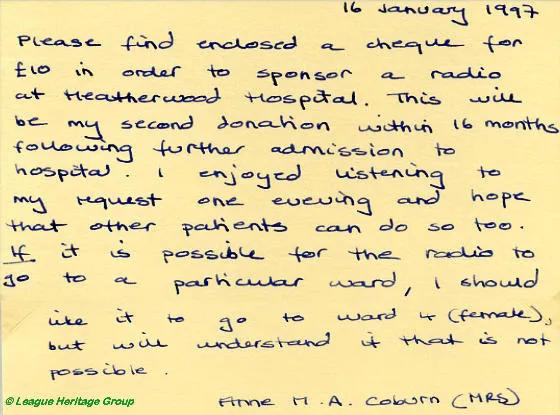 16 January 1997
Please find enclosed a cheque for
£10 in order to sponsor a radio
at Heatherwood Hospital. This will
be my second donation within 16 months
following further admission to
hospital. I enjoyed listening to
my request one evening and hope
that other patients can do so too.
If it is possible for the radio to
go to a particular ward, I should
like it to go to ward 4 (female),
but will understand if that is not
possible.
Anne M. A. Coburn (MRS)
© League Heritage Group